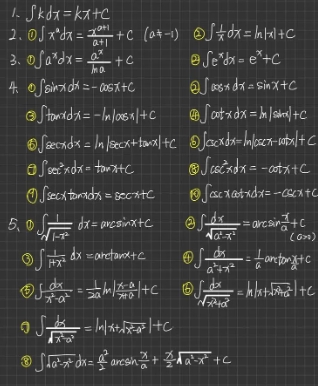 1. ∫kdx = kx+C
2. ① ∫xᵃdx = xᵃ⁺¹/(a+1) + C (a≠-1) ② ∫1/x dx = ln|x|+C
3. ① ∫aˣdx = aˣ/ln a + C ② ∫eˣdx = eˣ+C
4. ① ∫sinxdx = -cosx+C ② ∫cosxdx = sinx+C
③ ∫tanxdx = -ln|cosx|+C ④ ∫cotxdx = ln|sinx|+C
⑤ ∫secxdx = ln|secx+tanx|+C ⑥ ∫cscxdx = ln|cscx-cotx|+C
⑦ ∫sec²xdx = tanx+C ⑧ ∫csc²xdx = -cotx+C
⑨ ∫secxtanxdx = secx+C ⑩ ∫cscxcotxdx = -cscx+C
5. ① ∫1/√(1-x²) dx = arcsinx+C ② ∫dx/√(a²-x²) = arcsin x/a + C (a>0)
③ ∫1/(1+x²) dx = arctanx+C ④ ∫dx/(a²+x²) = 1/a arctan x/a + C
⑤ ∫dx/(x²-a²) = 1/2a ln|(x-a)/(x+a)|+C ⑥ ∫dx/√(x²+a²) = ln|x+√(x²+a²)|+C
⑦ ∫dx/√(x²-a²) = ln|x+√(x²-a²)|+C
⑧ ∫√(a²-x²) dx = a²/2 arcsin x/a + x/2 √(a²-x²) + C